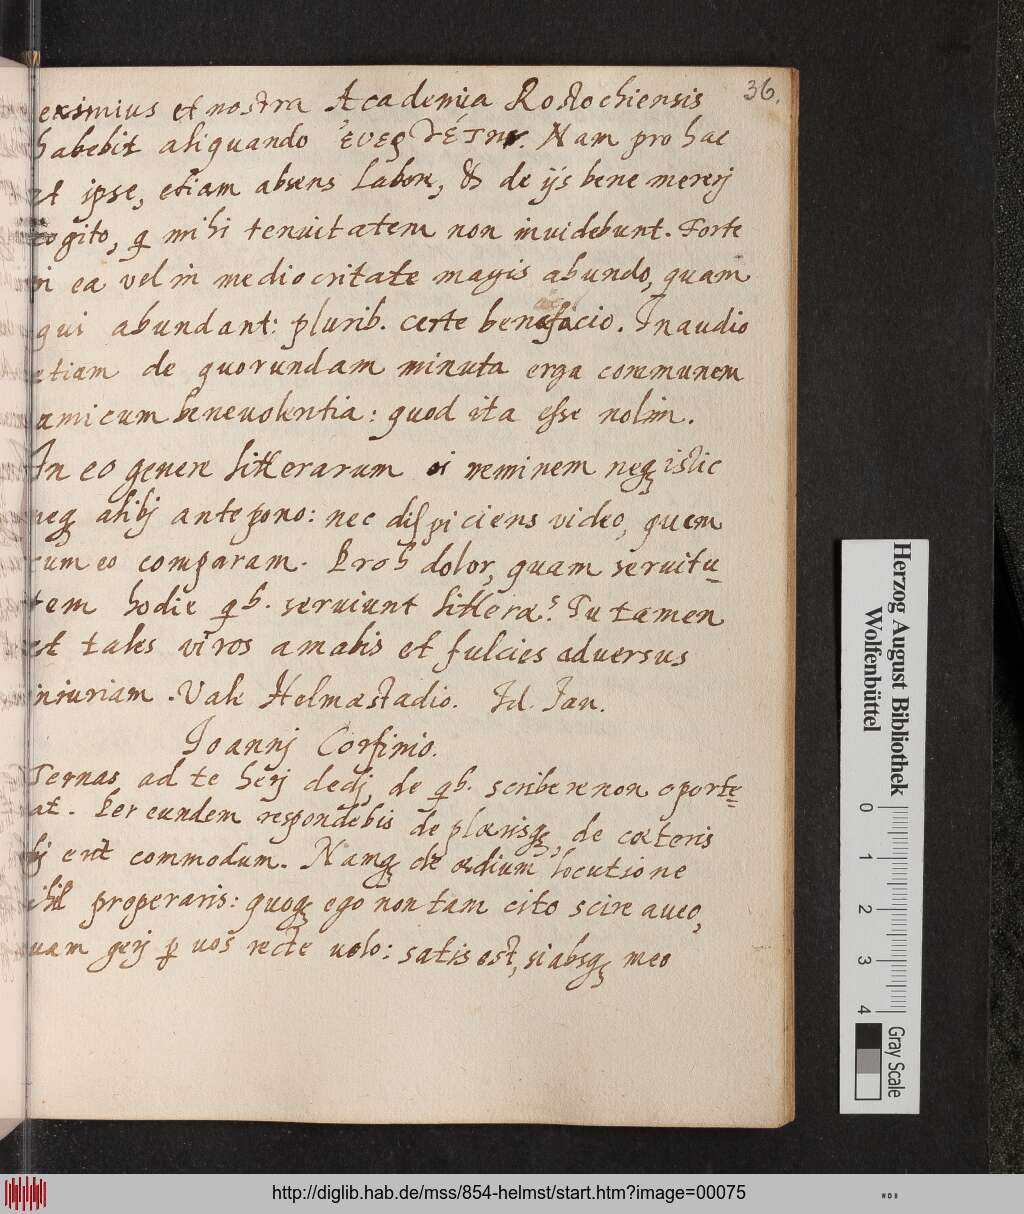 36.
eximius et nostra Academia Rostochiensis
habebit aliquando εὐεργέτην. Nam pro hac
et ipse, etiam absens labore, & de ijs bene mererj
cogito, q mihi tenuitatem non inuidebunt. Forte
in ea vel in mediocritate magis abundo, quam
qui abundant: plurib. certe benefacio. Inaudio
etiam de quorundam minuta erga communem
amicum beneuolentia: quod ita esse nolim.
In eo genere litterarum ei neminem neq istic
neq alibj antepono: nec dispiciens video, quem
cum eo comparam. Proh dolor, quam seruitu-
tem hodie qb. seruiunt litteræ? Tu tamen
et tales viros amabis et fulcies aduersus
iniuriam. Vale Helmæstadio. Id. Jan.
Joannj Corfinio.
Ternas ad te herj dedj, de qb. scribere non oporte-
at. Per eundem respondebis de plærisq, de cæteris
erit commodum. Namq de ædium locutione
properaris: quoq ego non tam cito scire aueo,
quam gerj p uos recte uolo: satis est, si absq meo
Herzog August Bibliothek
Wolfenbüttel
0 1 2 3 4
Gray Scale
http://diglib.hab.de/mss/854-helmst/start.htm?image=00075